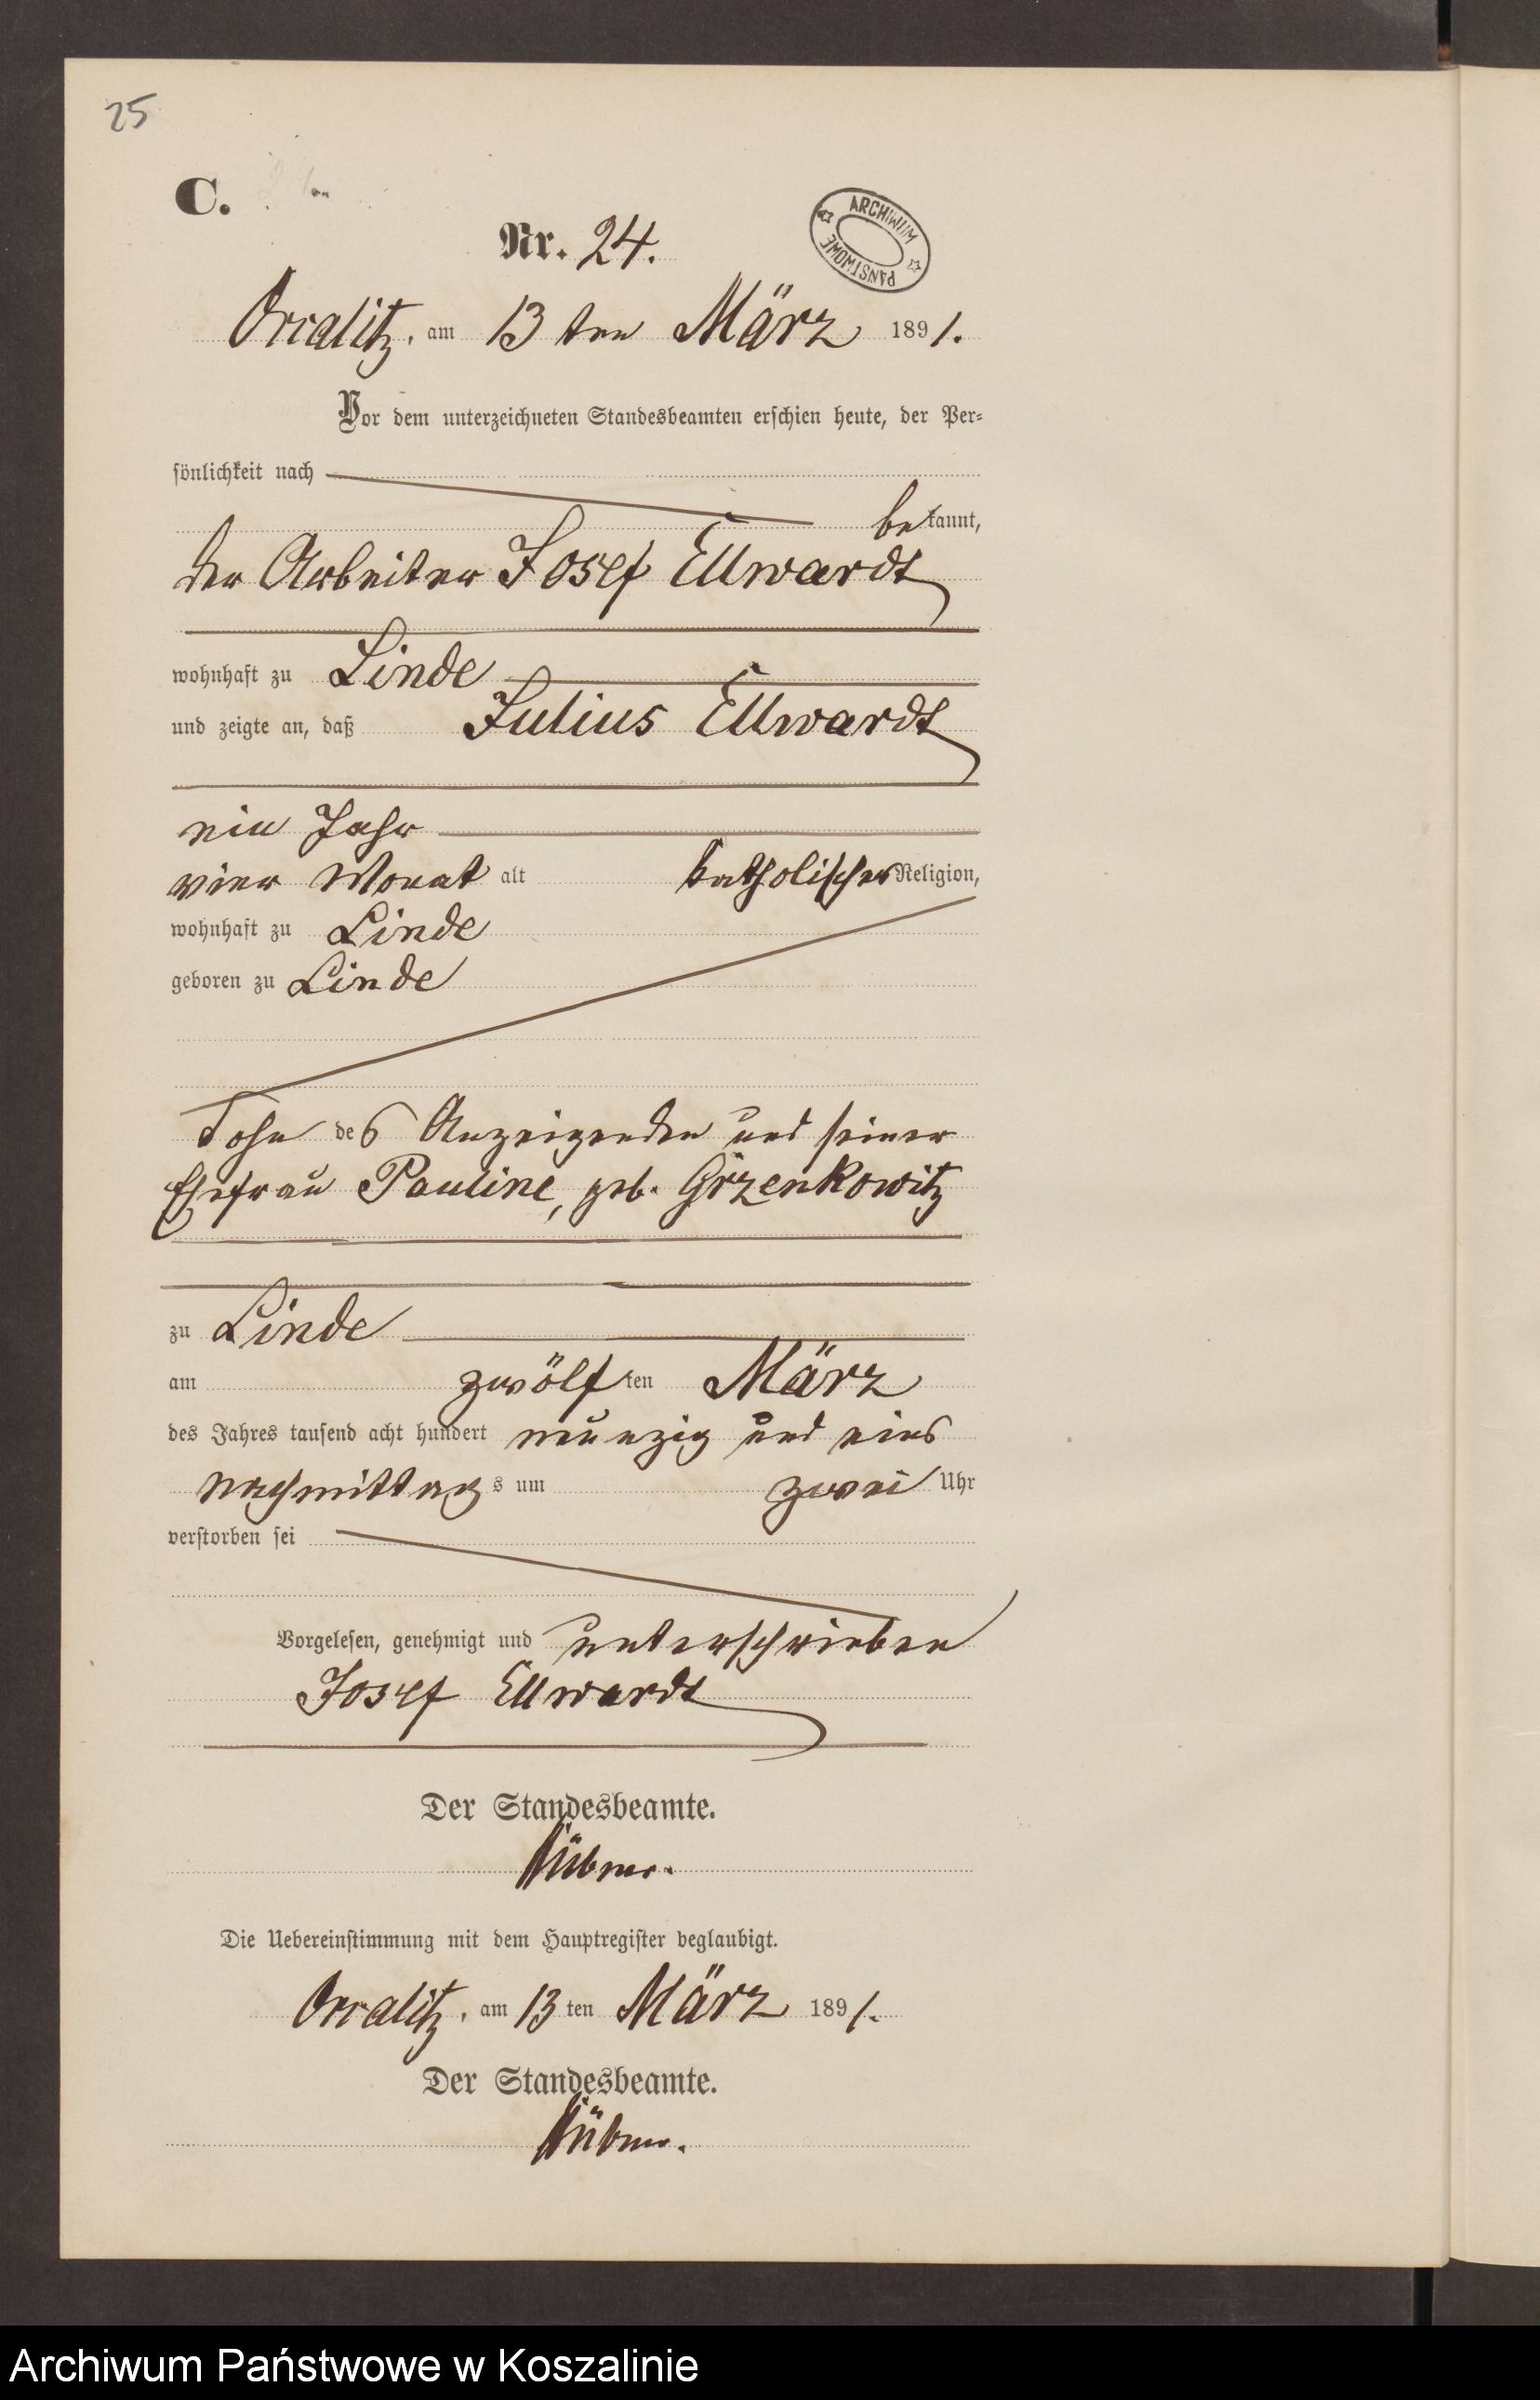 25
C.
Nr. 24.
ARCHIWUM PAŃSTWOWE
am 13 ten März 1891.
Vor dem unterzeichneten Standesbeamten erschien heute, der Per-
sönlichkeit nach
bekannt,
der Arbeiter Josef Ellwardt
wohnhaft zu Linde
und zeigte an, daß Julius Ellwardt
ein Jahr
vier Monat alt katholischer Religion,
wohnhaft zu Linde
geboren zu Linde
Sohn des Anzeigenden und seiner
Ehefrau Pauline, geb. Grzenkowitz
zu Linde
am zwölften März
des Jahres tausend acht hundert neunzig und eins
Nachmittags um zwei Uhr
verstorben sei
Vorgelesen, genehmigt und unterschrieben
Josef Ellwardt
Der Standesbeamte.
Die Uebereinstimmung mit dem Hauptregister beglaubigt.
am 13 ten März 1891.
Der Standesbeamte.
Archiwum Państwowe w Koszalinie